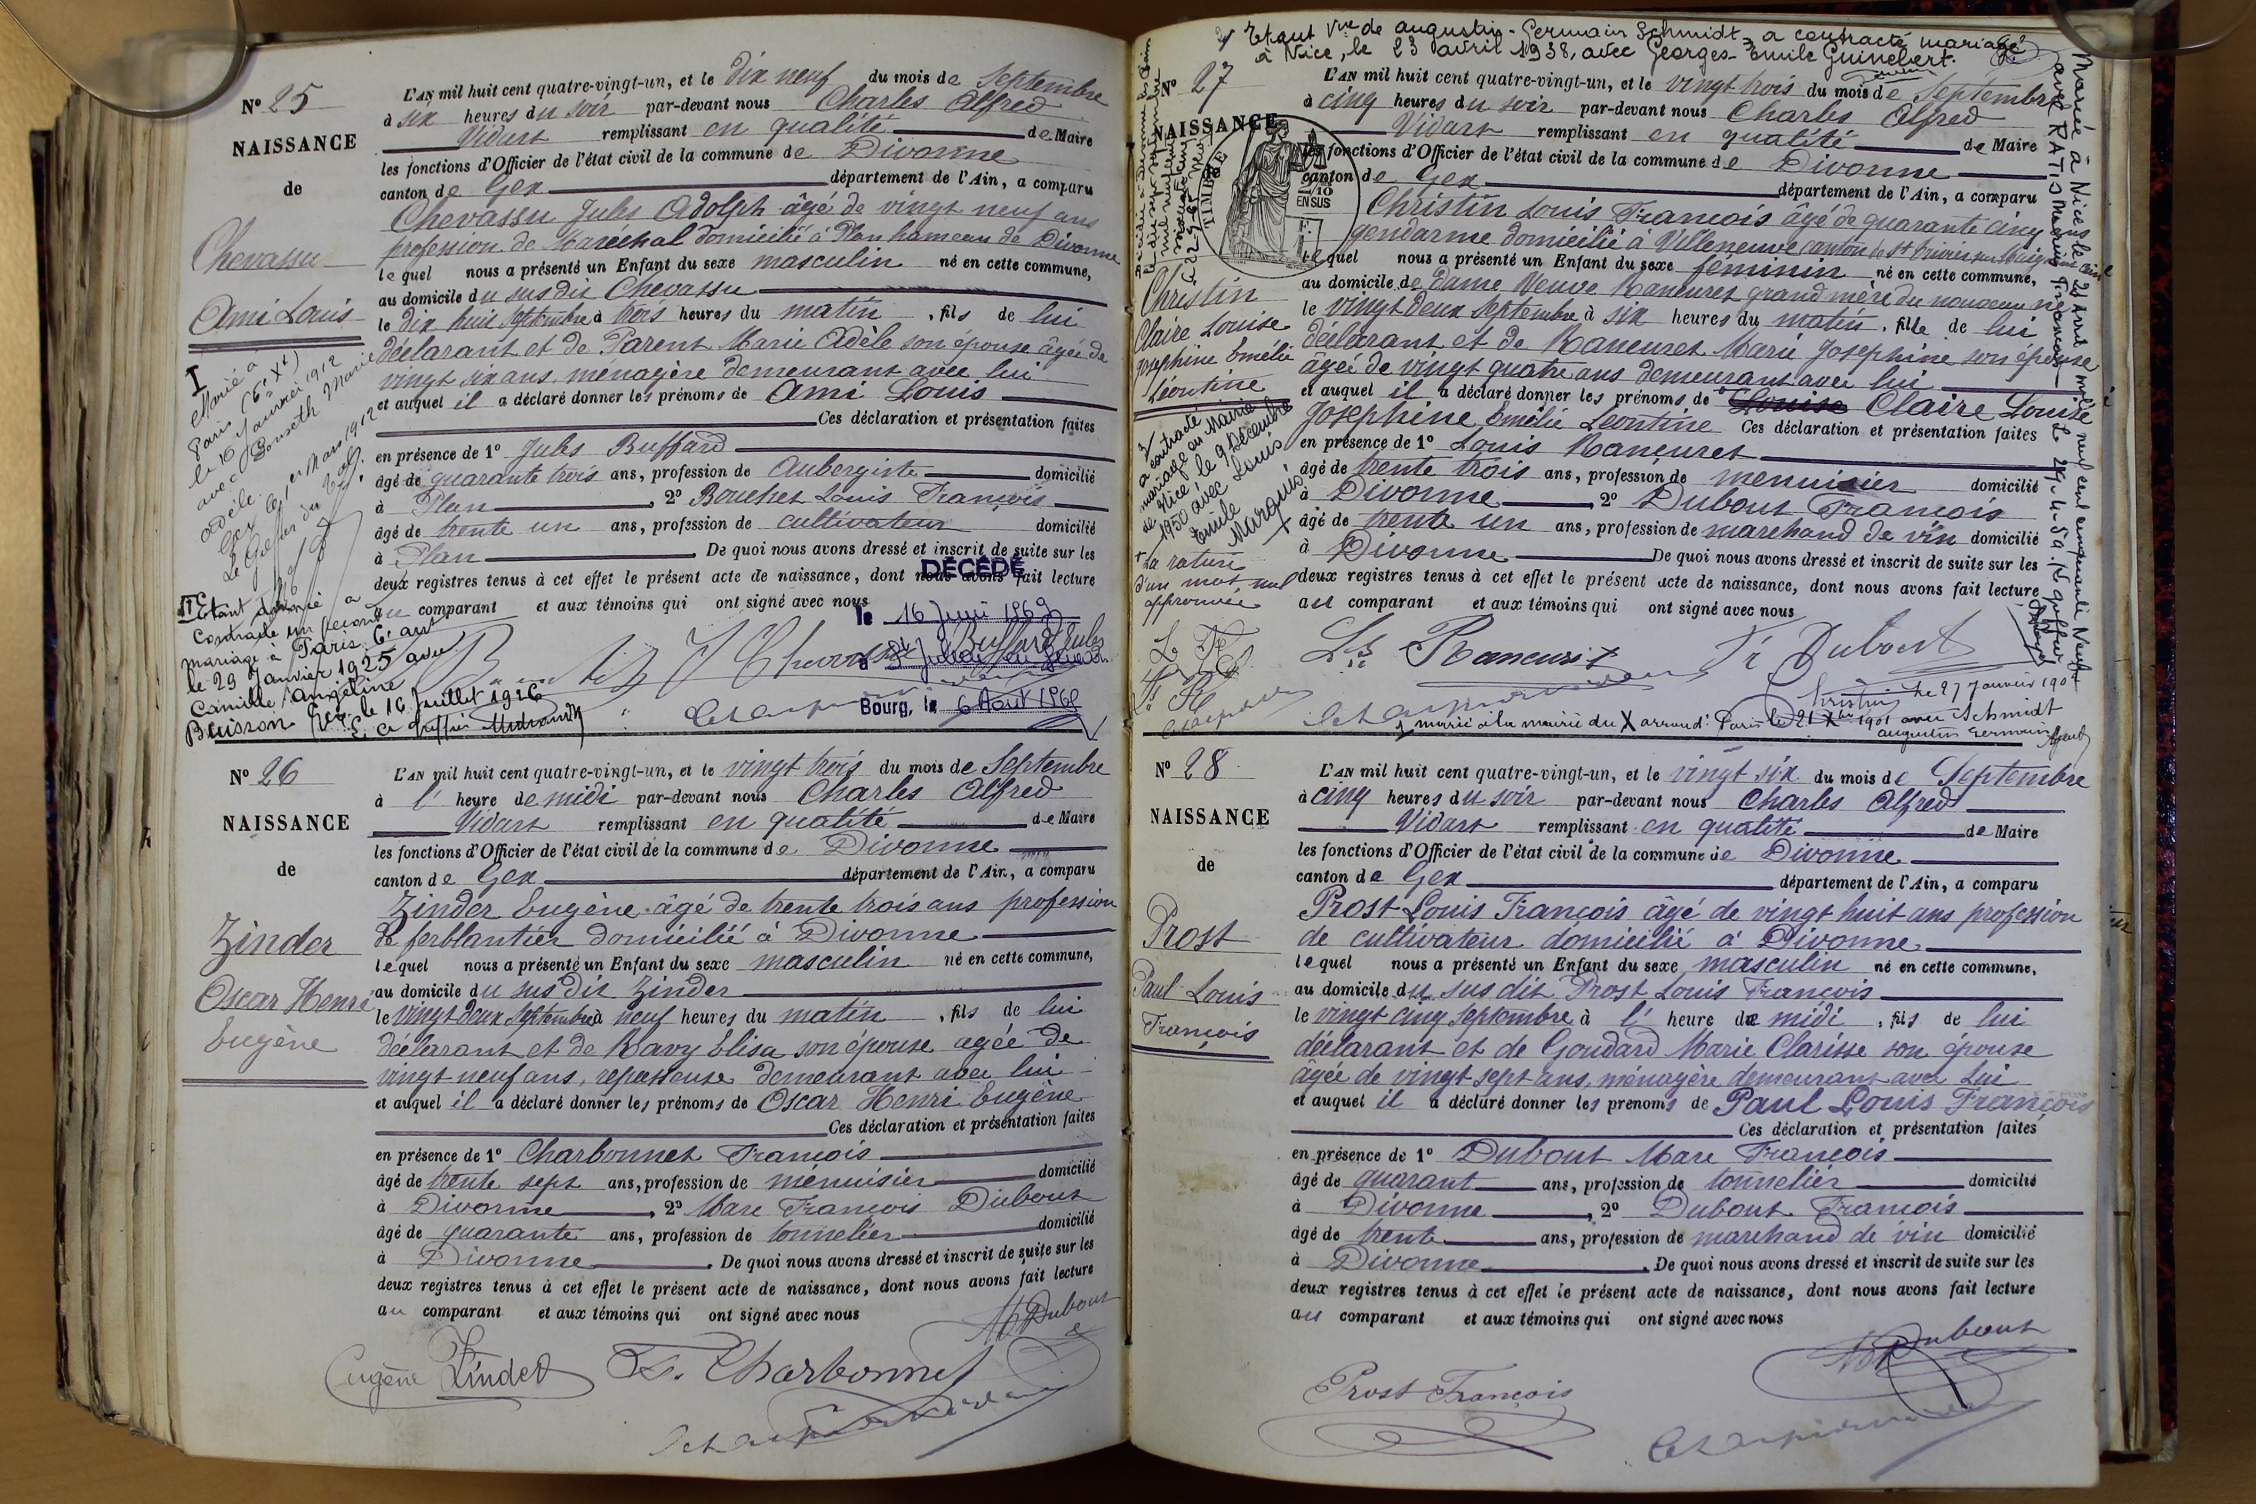 N° 25
NAISSANCE
de
Chevassu
Ami Louis
L'AN mil huit cent quatre-vingt-un, et le dix neuf du mois de Septembre
à six heures du soir par-devant nous Charles Alfred
Vidart remplissant en qualité de Maire
les fonctions d'Officier de l'état civil de la commune de Divonne
canton de Gex département de l'Ain, a comparu
Chevassu Jules Adolph âgé de vingt neuf ans
profession de Maréchal domicilié à Plan hameau de Divonne
lequel nous a présenté un Enfant du sexe masculin né en cette commune,
au domicile du susdit Chevassu
le dix huit Septembre à trois heures du matin, fils de lui
déclarant et de Parent Marie Adèle son épouse âgée de
vingt six ans, ménagère demeurant avec lui
et auquel il a déclaré donner les prénoms de Ami Louis
Ces déclaration et présentation faites
en présence de 1° Jules Buffard
âgé de quarante trois ans, profession de Aubergiste domicilié
à Plan, 2° Bouchet Louis François
âgé de trente un ans, profession de cultivateur domicilié
à Plan. De quoi nous avons dressé et inscrit de suite sur les
deux registres tenus à cet effet le présent acte de naissance, dont nous avons fait lecture
au comparant et aux témoins qui ont signé avec nous
I
Marié à
Paris (6e Xt)
le 16 Janvier 1912
avec Gonseth Marie
Adèle.
Gex le 1er Mars 1912
Le Greffier du
IIe
Etant divorcé a
Contracté un second
mariage à Paris 6e arrt
le 29 Janvier 1925 avec
Camille Angéline
Buisson Gex le 16 Juillet 1926
Le Greffier
DÉCÉDÉ
le 16 Juin 1969
à St Julien en Genevois
Bourg, le 6 Août 1969
Buffard Jules
N° 26
NAISSANCE
de
Zinder
Oscar Henri
Eugène
L'AN mil huit cent quatre-vingt-un, et le vingt trois du mois de Septembre
à l' heure de midi par-devant nous Charles Alfred
Vidart remplissant en qualité de Maire
les fonctions d'Officier de l'état civil de la commune de Divonne
canton de Gex département de l'Ain, a comparu
Zinder Eugène âgé de trente trois ans profession
de ferblantier domicilié à Divonne
lequel nous a présenté un Enfant du sexe masculin né en cette commune,
au domicile du susdit Zinder
le vingt deux Septembre à neuf heures du matin, fils de lui
déclarant et de Ravy Elisa son épouse agée de
vingt neuf ans, repasseuse demeurant avec lui
et auquel il a déclaré donner les prénoms de Oscar Henri Eugène
Ces déclaration et présentation faites
en présence de 1° Charbonnet François
âgé de trente sept ans, profession de ménuisier domicilié
à Divonne, 2° Marc François Dubout
âgé de quarante ans, profession de tonnelier domicilié
à Divonne. De quoi nous avons dressé et inscrit de suite sur les
deux registres tenus à cet effet le présent acte de naissance, dont nous avons fait lecture
au comparant et aux témoins qui ont signé avec nous
Dubout
Eugène Zinder F. Charbonnet
2/ Etant Vve de augustin-Germain Schmidt, a contracté mariage
à Nice, le 23 avril 1938, avec Georges-Emile Guinebert.
N° 27
NAISSANCE
de
TIMBRE
2/10
EN SUS
Christin
Claire Louise
Joséphine Emélie
Léontine
L'AN mil huit cent quatre-vingt-un, et le vingt trois du mois de Septembre
à cinq heures du soir par-devant nous Charles Alfred
Vidart remplissant en qualité de Maire
les fonctions d'Officier de l'état civil de la commune de Divonne
canton de Gex département de l'Ain, a comparu
Christin Louis François âgé de quarante cinq ans
gendarme domicilié à Villeneuve canton de St Trivier sur Moignans
lequel nous a présenté un Enfant du sexe féminin né en cette commune,
au domicile de Dame Veuve Raneuret grand mère du nouveau né
le vingt deux Septembre à six heures du matin, fille de lui
déclarant et de Raneuret Marie Josephine son épouse
âgée de vingt quatre ans demeurant avec lui
et auquel il a déclaré donner les prénoms de Louise Claire Louise
Josephine Emélie Leontine Ces déclaration et présentation faites
en présence de 1° Louis Raneuret
âgé de trente trois ans, profession de menuisier domicilié
à Divonne 2° Dubout François
âgé de trente un ans, profession de marchand de vin domicilié
à Divonne De quoi nous avons dressé et inscrit de suite sur les
deux registres tenus à cet effet le présent acte de naissance, dont nous avons fait lecture
au comparant et aux témoins qui ont signé avec nous
3/
a contracté
mariage en Mairie
de Nice le 9 Décembre
1950 avec Louis
Emile
Marquis
+ La rature
d'un mot nul
approuvée
Ls Raneuret Fs Dubout
Christin
1 marié à la mairie du X arrond! Paris le 21 Xbre 1901 avec Schmidt
augustin Germain
Mariée à Nice le 21 Avril mil neuf cent cinquante neuf
avec RATIS Maurice François
N° 28
NAISSANCE
de
Prost
Paul Louis
François
L'AN mil huit cent quatre-vingt-un, et le vingt six du mois de Septembre
à cinq heures du soir par-devant nous Charles Alfred
Vidart remplissant en qualité de Maire
les fonctions d'Officier de l'état civil de la commune de Divonne
canton de Gex département de l'Ain, a comparu
Prost Louis François âgé de vingt huit ans profession
de cultivateur domicilié à Divonne
lequel nous a présenté un Enfant du sexe masculin né en cette commune,
au domicile du susdit Prost Louis François
le vingt cinq Septembre à l' heure de midi, fils de lui
déclarant et de Goudard Marie Clarisse son épouse
âgée de vingt sept ans, ménagère demeurant avec lui
et auquel il a déclaré donner les prénoms de Paul Louis François
Ces déclaration et présentation faites
en présence de 1° Dubout Marc François
âgé de quarant ans, profession de tonnelier domicilié
à Divonne, 2° Dubout François
âgé de trente ans, profession de marchand de vin domicilié
à Divonne. De quoi nous avons dressé et inscrit de suite sur les
deux registres tenus à cet effet le présent acte de naissance, dont nous avons fait lecture
au comparant et aux témoins qui ont signé avec nous
Dubout
Prost François